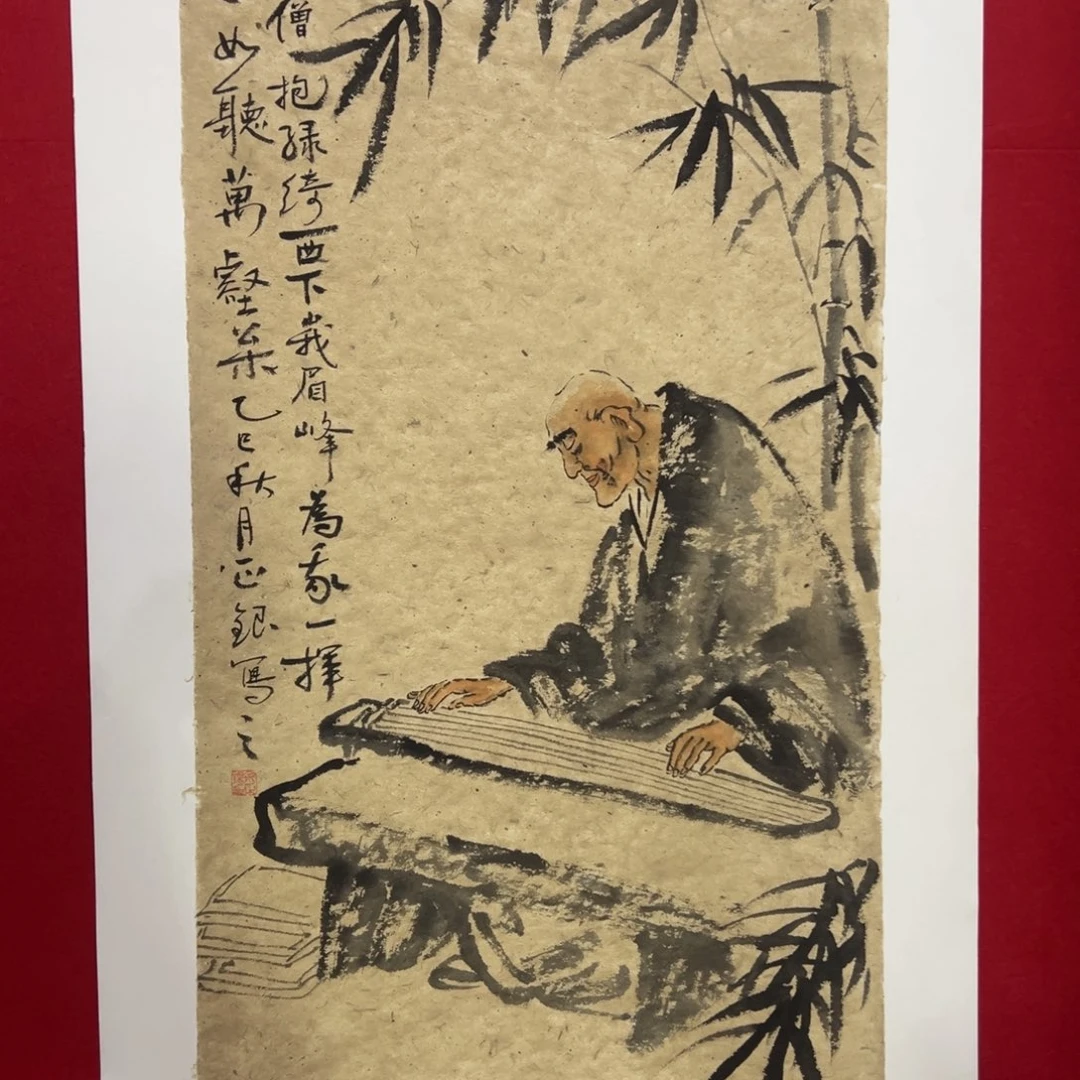 僧抱绿綺西下峩眉峰為我一揮
如聽萬壑枀乙巳秋月正銀寫之